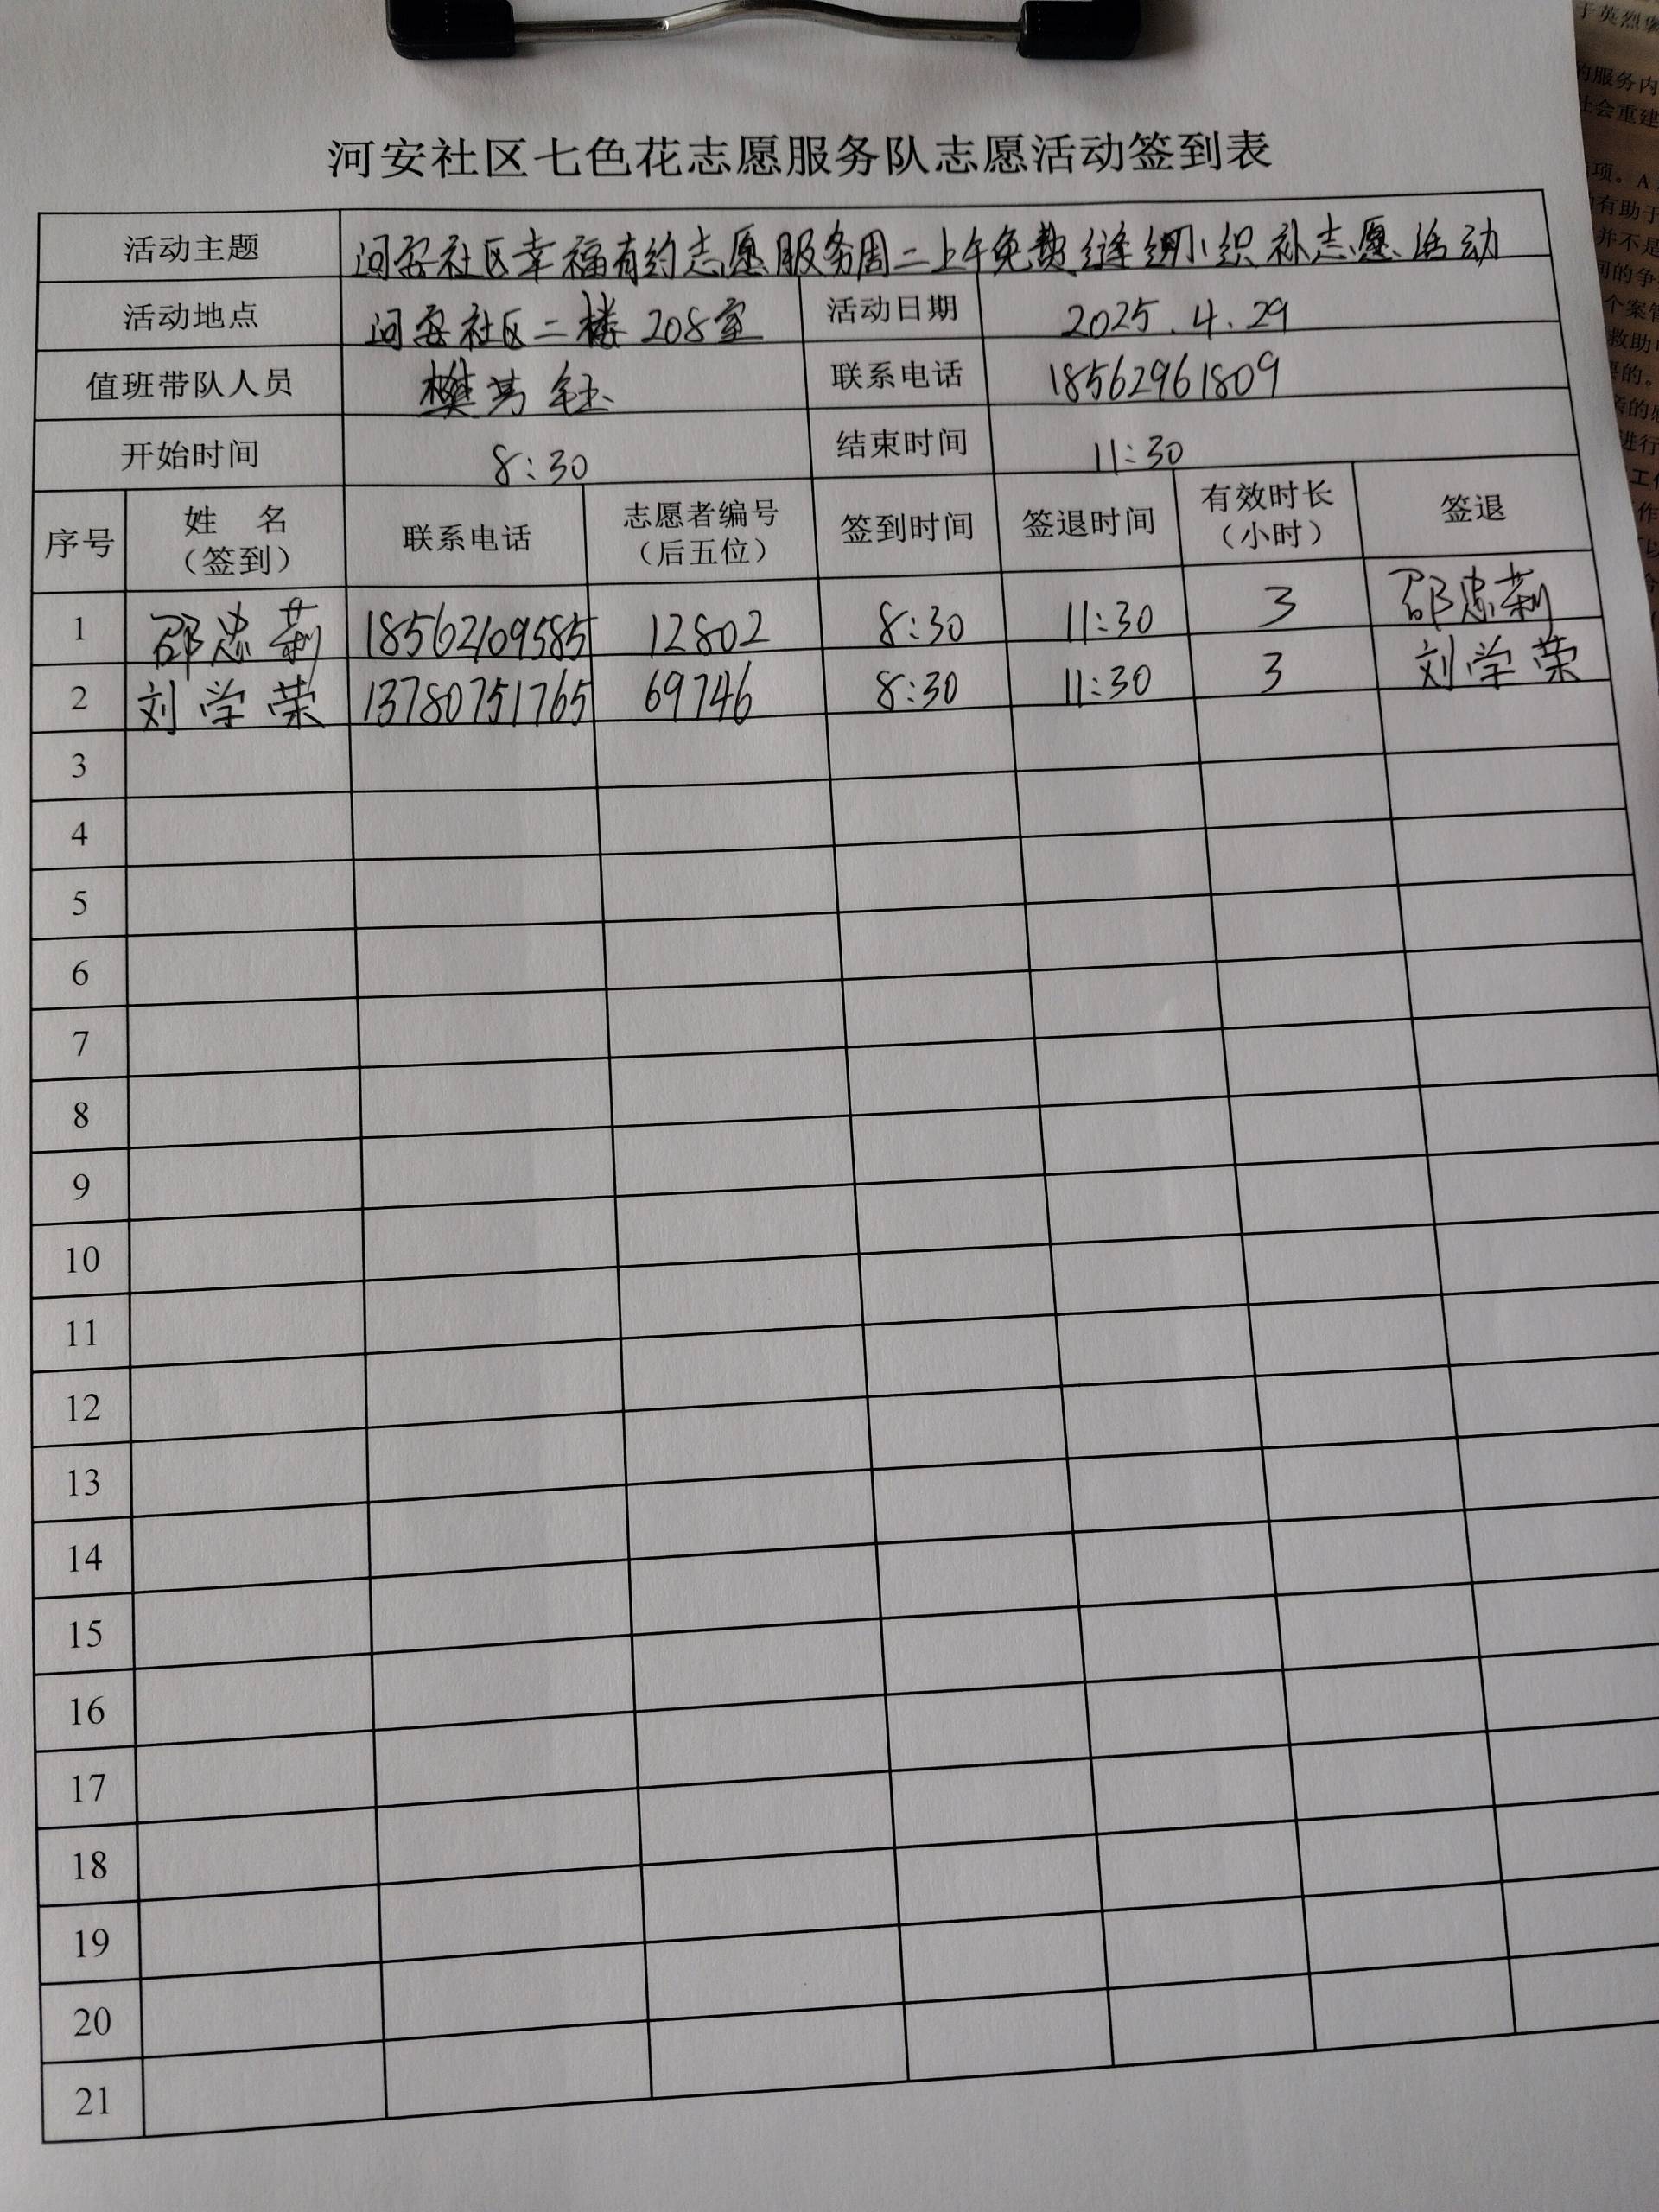 河安社区七色花志愿服务队志愿活动签到表
活动主题 河安社区幸福有约志愿服务周二上午免费缝纫小织补志愿活动
活动地点 河安社区二楼208室 活动日期 2025.4.29
值班带队人员 樊芳钰 联系电话 18562961809
开始时间 8:30 结束时间 11:30
序号 姓 名（签到） 联系电话 志愿者编号（后五位） 签到时间 签退时间 有效时长（小时） 签退
1 邵忠莉 18562109585 12802 8:30 11:30 3 邵忠莉
2 刘学荣 13780751765 69746 8:30 11:30 3 刘学荣
3
4
5
6
7
8
9
10
11
12
13
14
15
16
17
18
19
20
21
于英烈
的服务内
社会重建
项。A
有助于
并不是
间的争
个案管
救助
要的。
进行